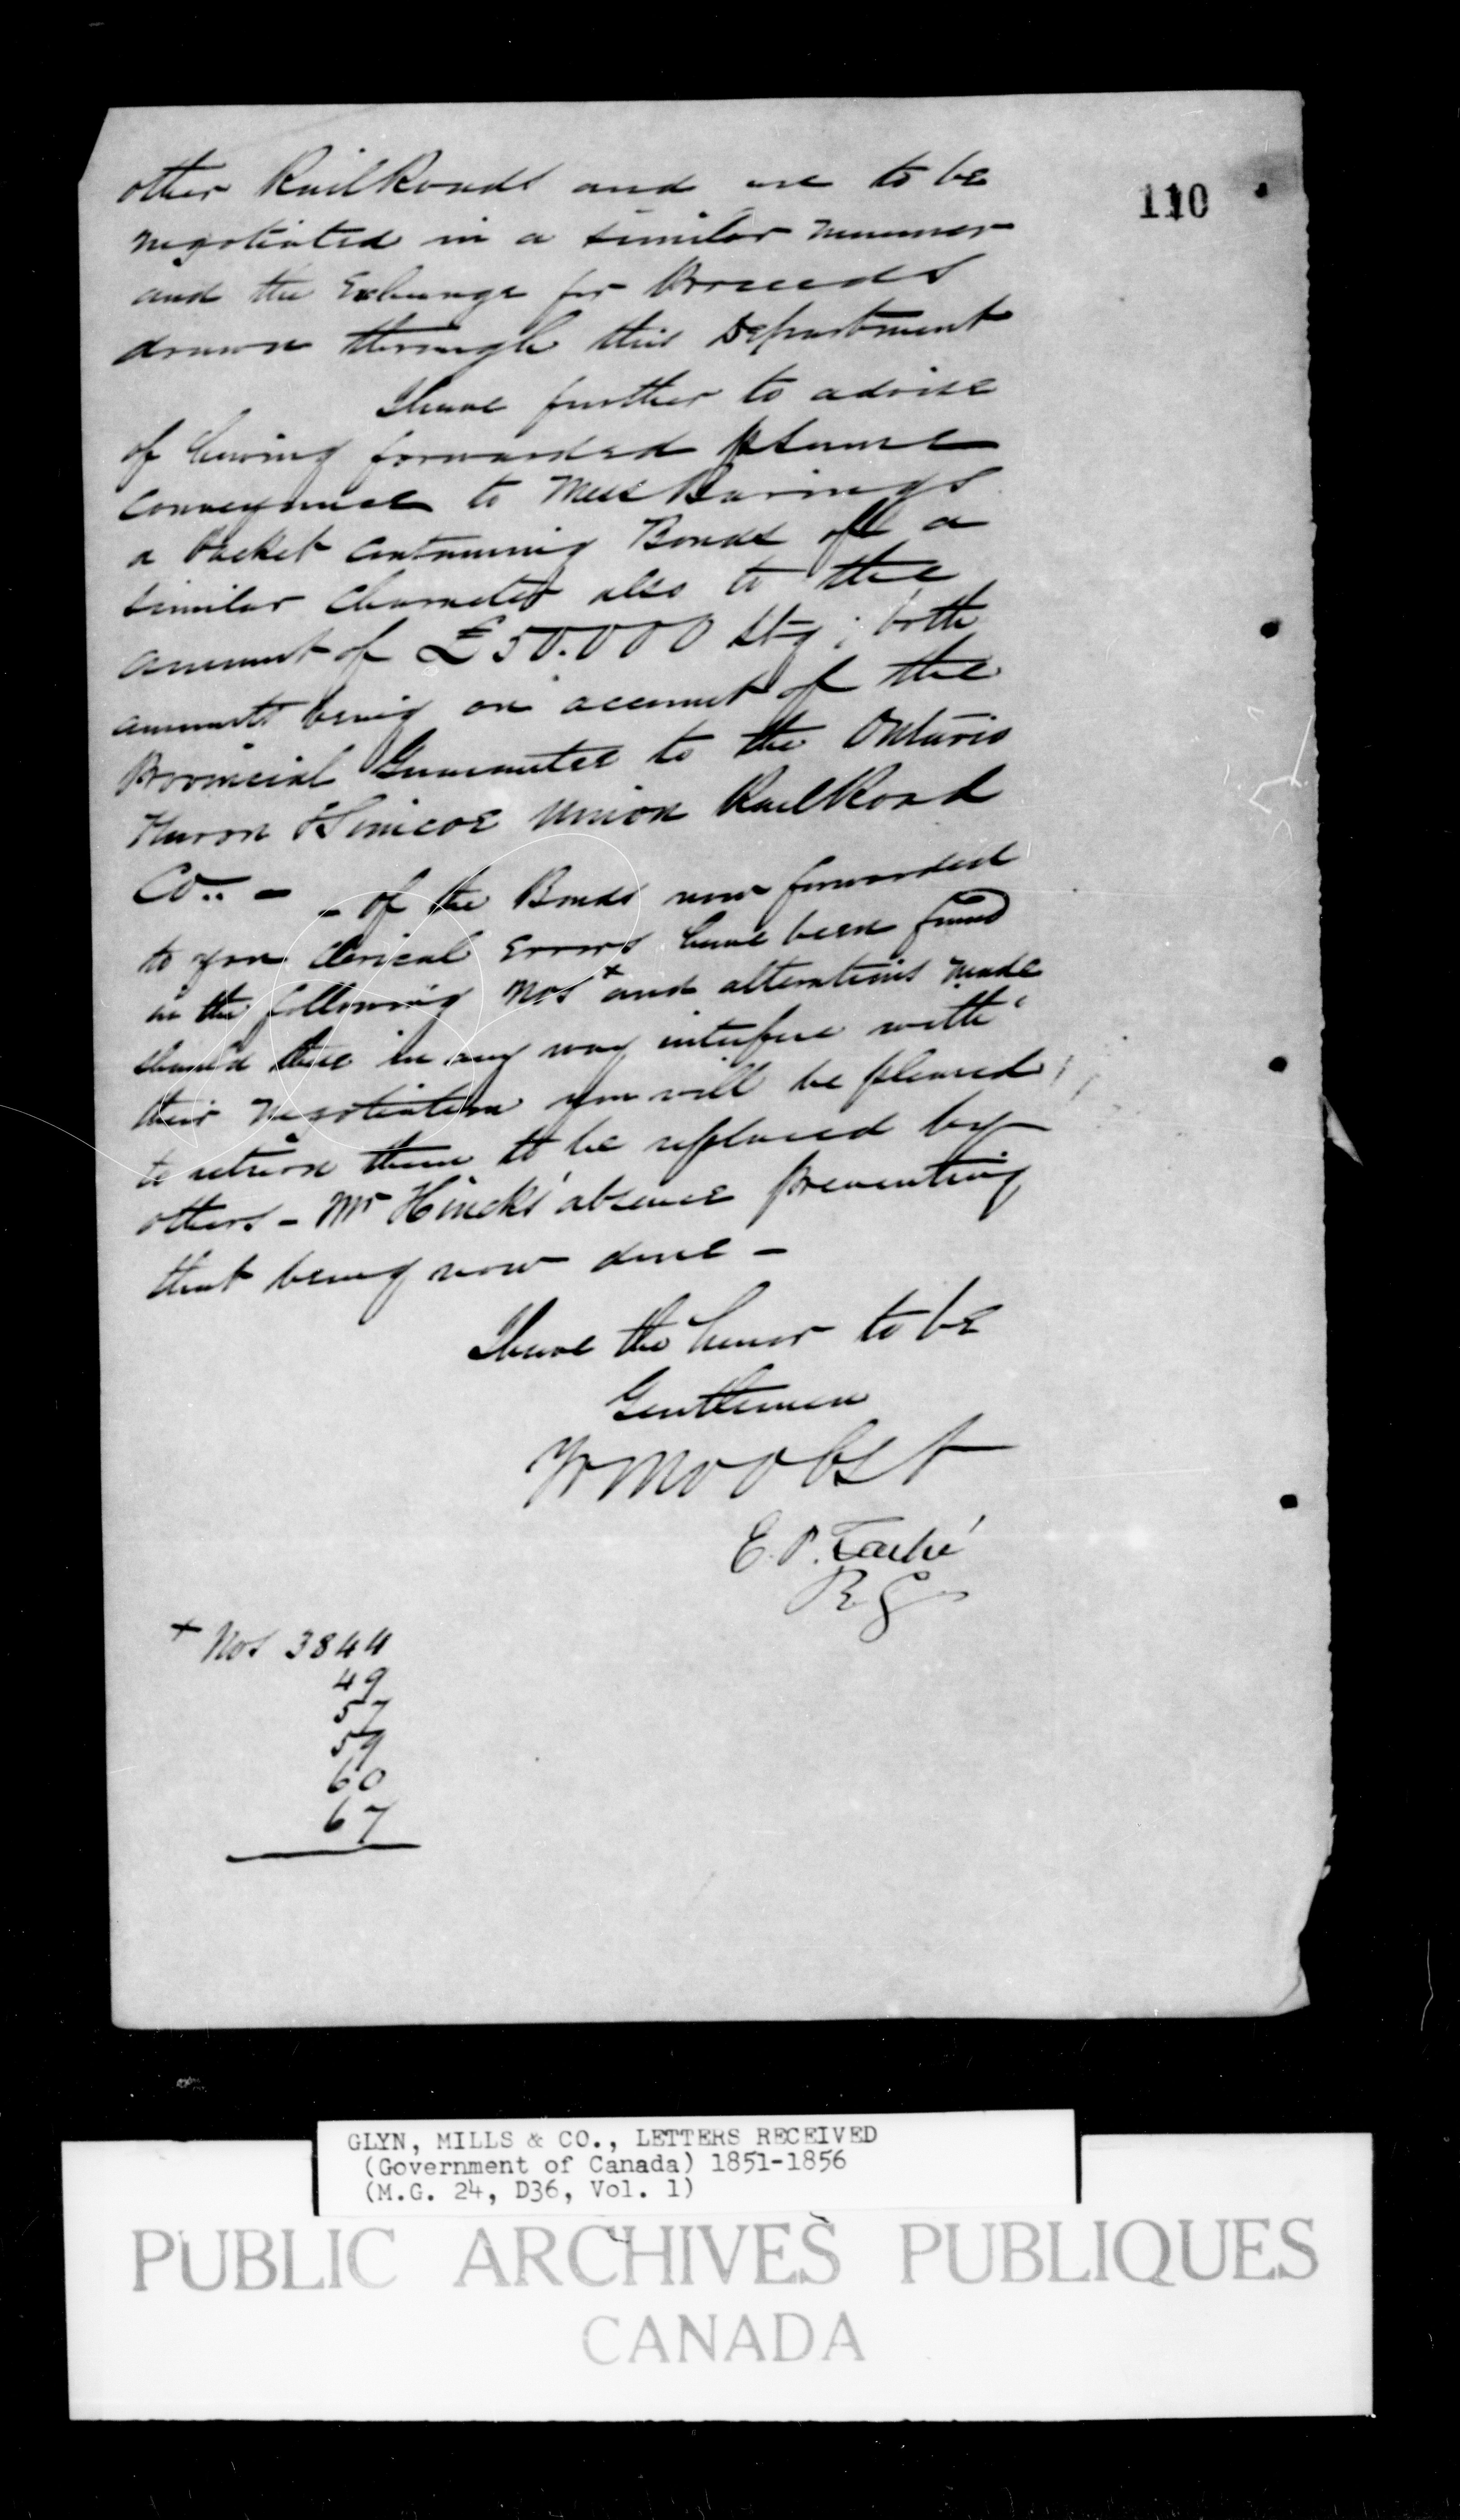 110
other RailRoads and are to be
negotiated in a similar manner
and the Exchange for Proceeds
drawn through this Department
I have further to advise
of having forwarded p same
conveyance to Mess Barings
a Packet containing Bonds of a
similar character also to the
amount of £50.000 Stg; both
amounts being on account of the
Provincial Guarantee to the Ontario
Huron & Simcoe Union RailRoad
Co.. - - Of the Bonds now forwarded
to you clerical errors have been found
in the following Nos + and alterations made
should these in any way interfere with
their negotiation you will be pleased
to return them to be replaced by
others - Mr Hincks' absence preventing
that being now done -
I have the honor to be
Gentlemen
Yr Mo Ob St
E. P. Taché
R G
+ Nos 3844
49
57
59
60
67
GLYN, MILLS & CO., LETTERS RECEIVED
(Government of Canada) 1851-1856
(M.G. 24, D36, Vol. 1)
PUBLIC ARCHIVES PUBLIQUES
CANADA